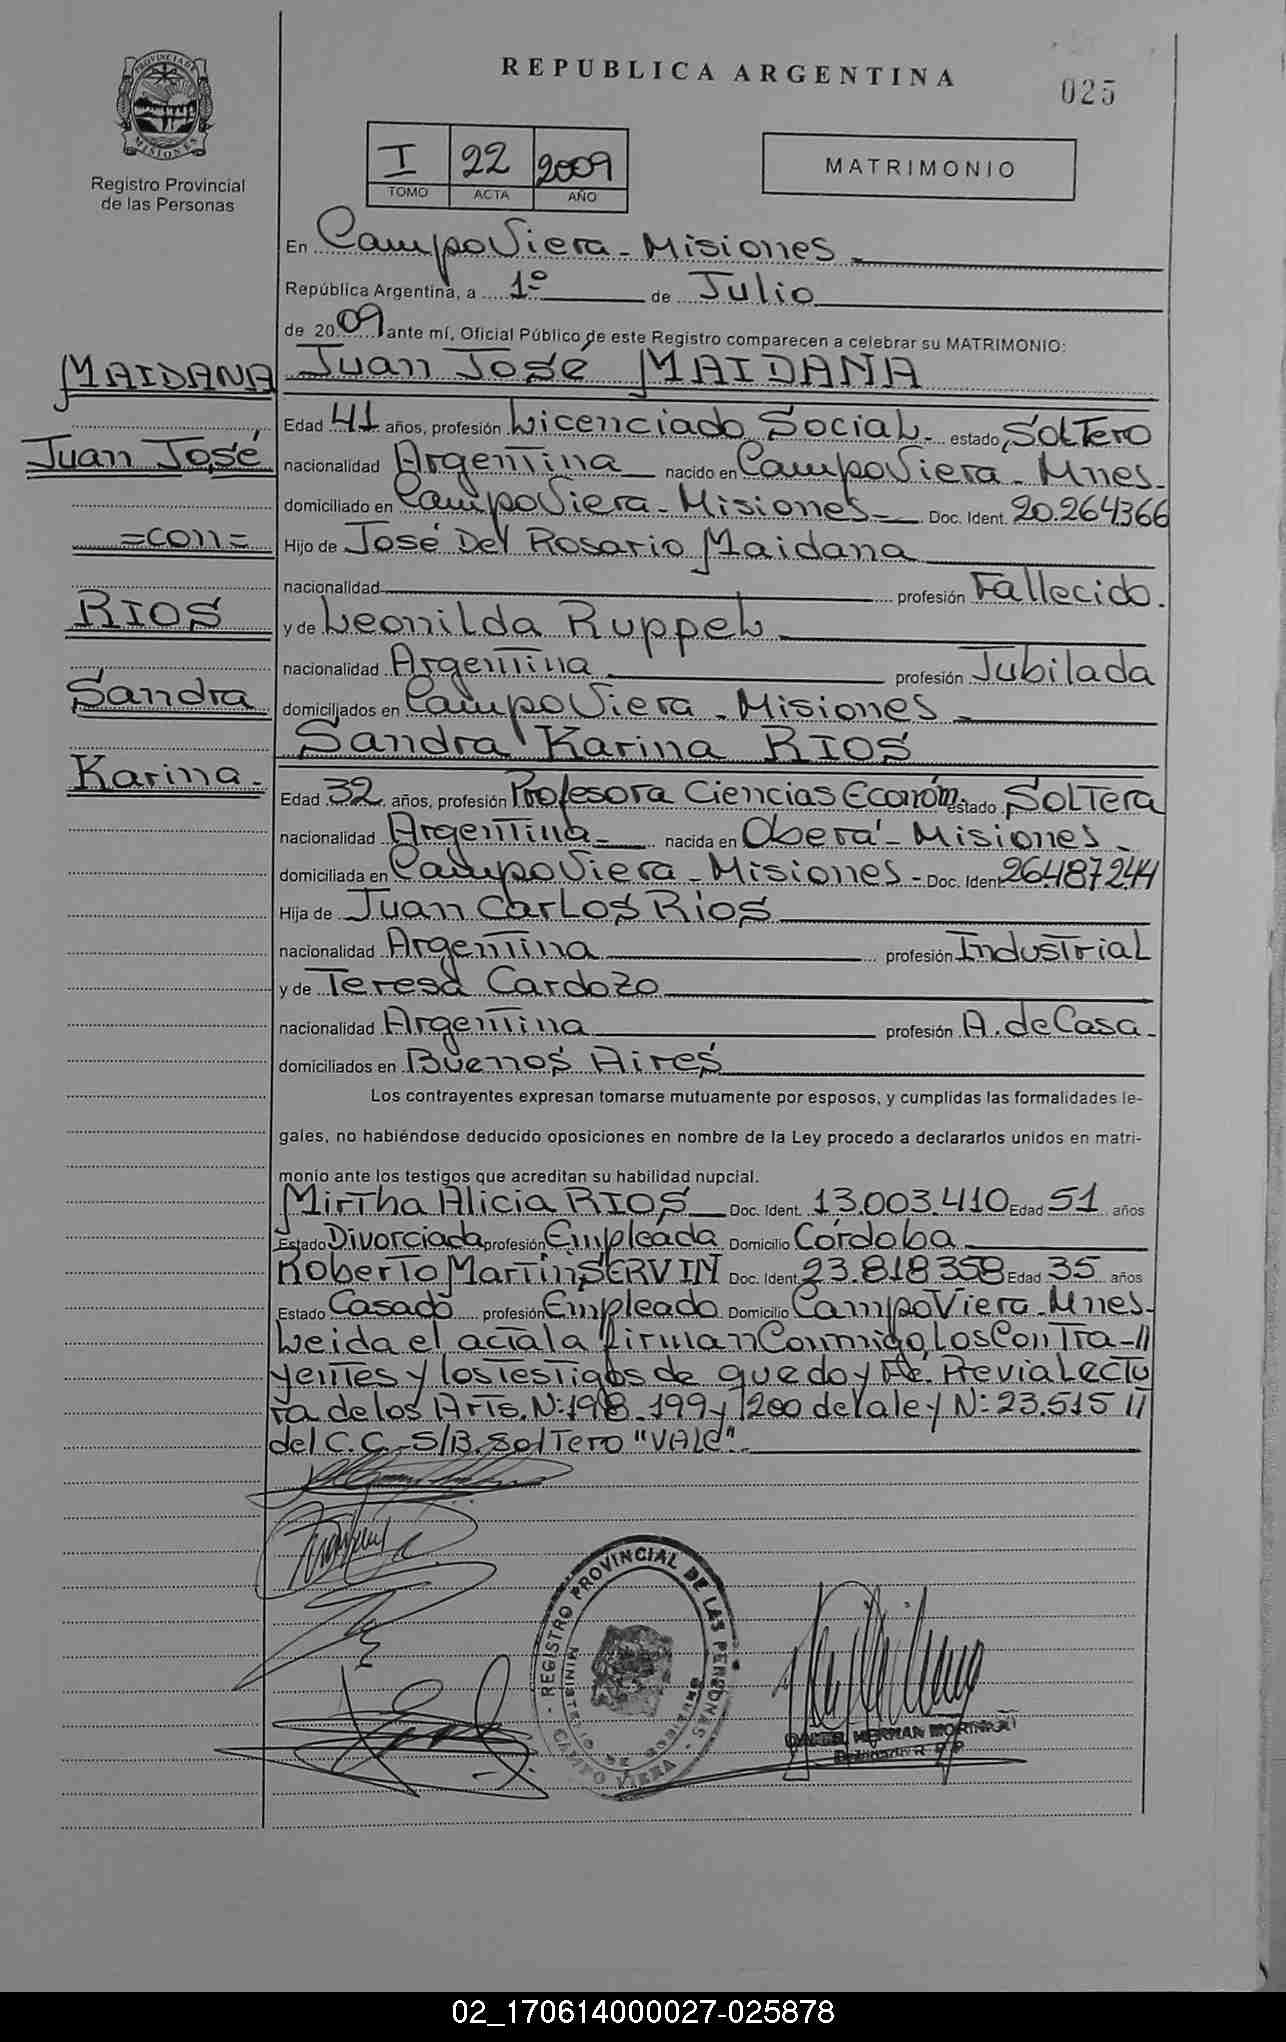 REPUBLICA ARGENTINA
025
PROVINCIA DE MISIONES
Registro Provincial
de las Personas
I 22 2009
TOMO ACTA AÑO
MATRIMONIO
En CampoViera - Misiones
República Argentina, a 1º de Julio
de 2009 ante mí, Oficial Público de este Registro comparecen a celebrar su MATRIMONIO:
MAIDANA Juan José MAIDANA
Edad 41 años, profesión Licenciado Social estado Soltero
Juan José nacionalidad Argentina nacido en CampoViera - Mnes.
domiciliado en CampoViera - Misiones Doc. Ident. 20.264366
=con= Hijo de José Del Rosario Maidana
nacionalidad profesión Fallecido.
RIOS y de Leonilda Ruppel
nacionalidad Argentina profesión Jubilada
Sandra domiciliados en CampoViera - Misiones
Sandra Karina RIOS
Karina. Edad 32 años, profesión Profesora Ciencias Económ. estado Soltera
nacionalidad Argentina nacida en Oberá - Misiones
domiciliada en CampoViera - Misiones - Doc. Ident. 26.487244
Hija de Juan Carlos Rios
nacionalidad Argentina profesión Industrial
y de Teresa Cardozo
nacionalidad Argentina profesión A. de Casa
domiciliados en Buenos Aires
Los contrayentes expresan tomarse mutuamente por esposos, y cumplidas las formalidades le-
gales, no habiéndose deducido oposiciones en nombre de la Ley procedo a declararlos unidos en matri-
monio ante los testigos que acreditan su habilidad nupcial.
Mirtha Alicia RIOS Doc. Ident. 13.003.410 Edad 51 años
Estado Divorciada profesión Empleada Domicilio Córdoba
Roberto Martín SERVIN Doc. Ident. 23.818358 Edad 35 años
Estado Casado profesión Empleado Domicilio CampoViera - Mnes.
Leida el acta la firman Conmigo, Los Contra-//
yentes y los testigos de que doy Fé. Previa Lectu
ra de los Arts. N: 198. 199 y 200 de la ley N: 23.515 //
del C.C. - S/B. Soltero "VALE"
REGISTRO PROVINCIAL DE LAS PERSONAS
MINISTERIO DE GOBIERNO
CAMPO VIERA
HERNAN
02_170614000027-025878